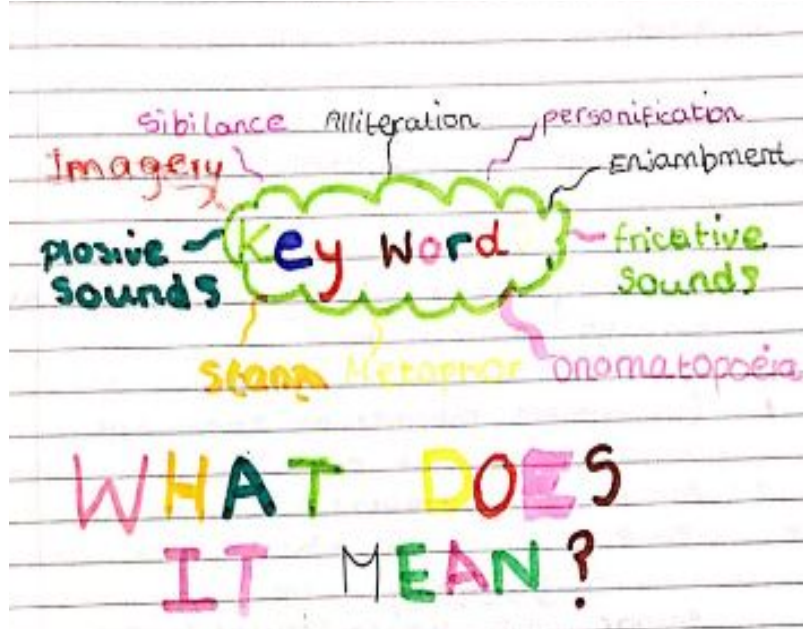 Sibilance Alliteration personification
Imagery Enjambment
Key Word
plosive sounds
fricative sounds
Metaphor onomatopoeia
WHAT DOES
IT MEAN?